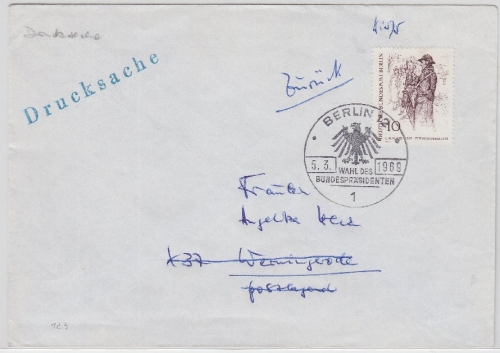 Drucksache
Drucksache
Zurück
DEUTSCHE BUNDESPOST BERLIN
10
BERLIN 12
5.3. 1969
WAHL DES
BUNDESPRÄSIDENTEN
1
Fräulein
Angelika
X37 Wernigerode
postlagernd